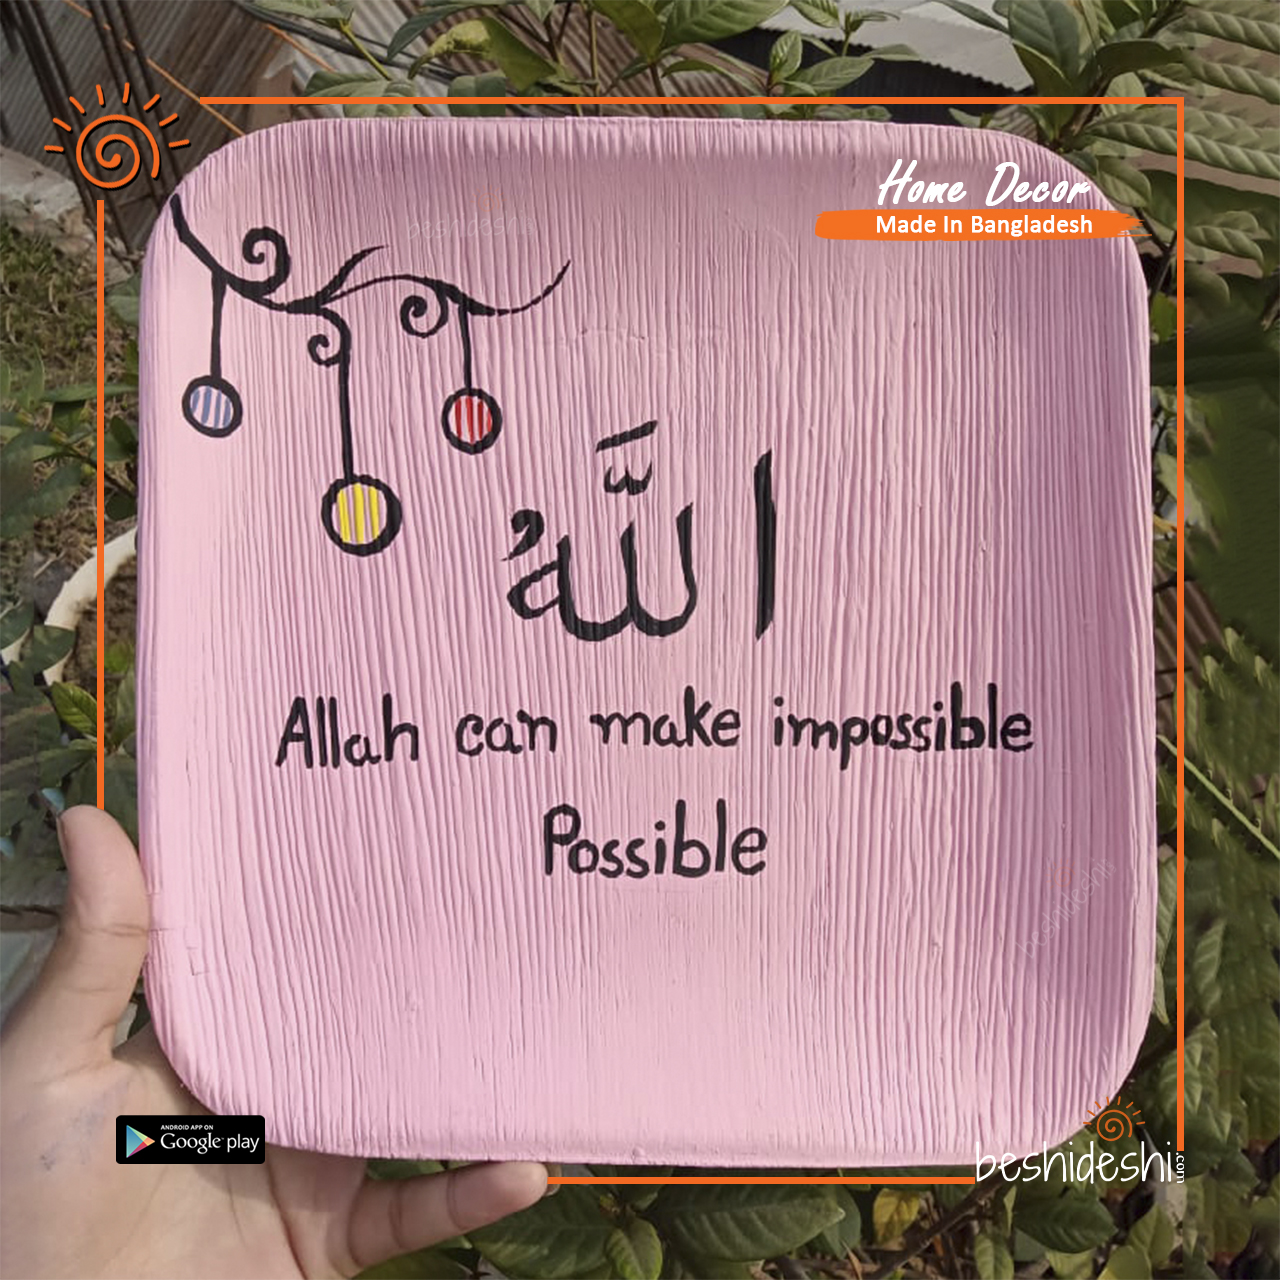 Home Decor
Made In Bangladesh
beshideshi
اللّٰهُ
Allah can make impossible
Possible
beshideshi
ANDROID APP ON
Google play
beshideshi.com